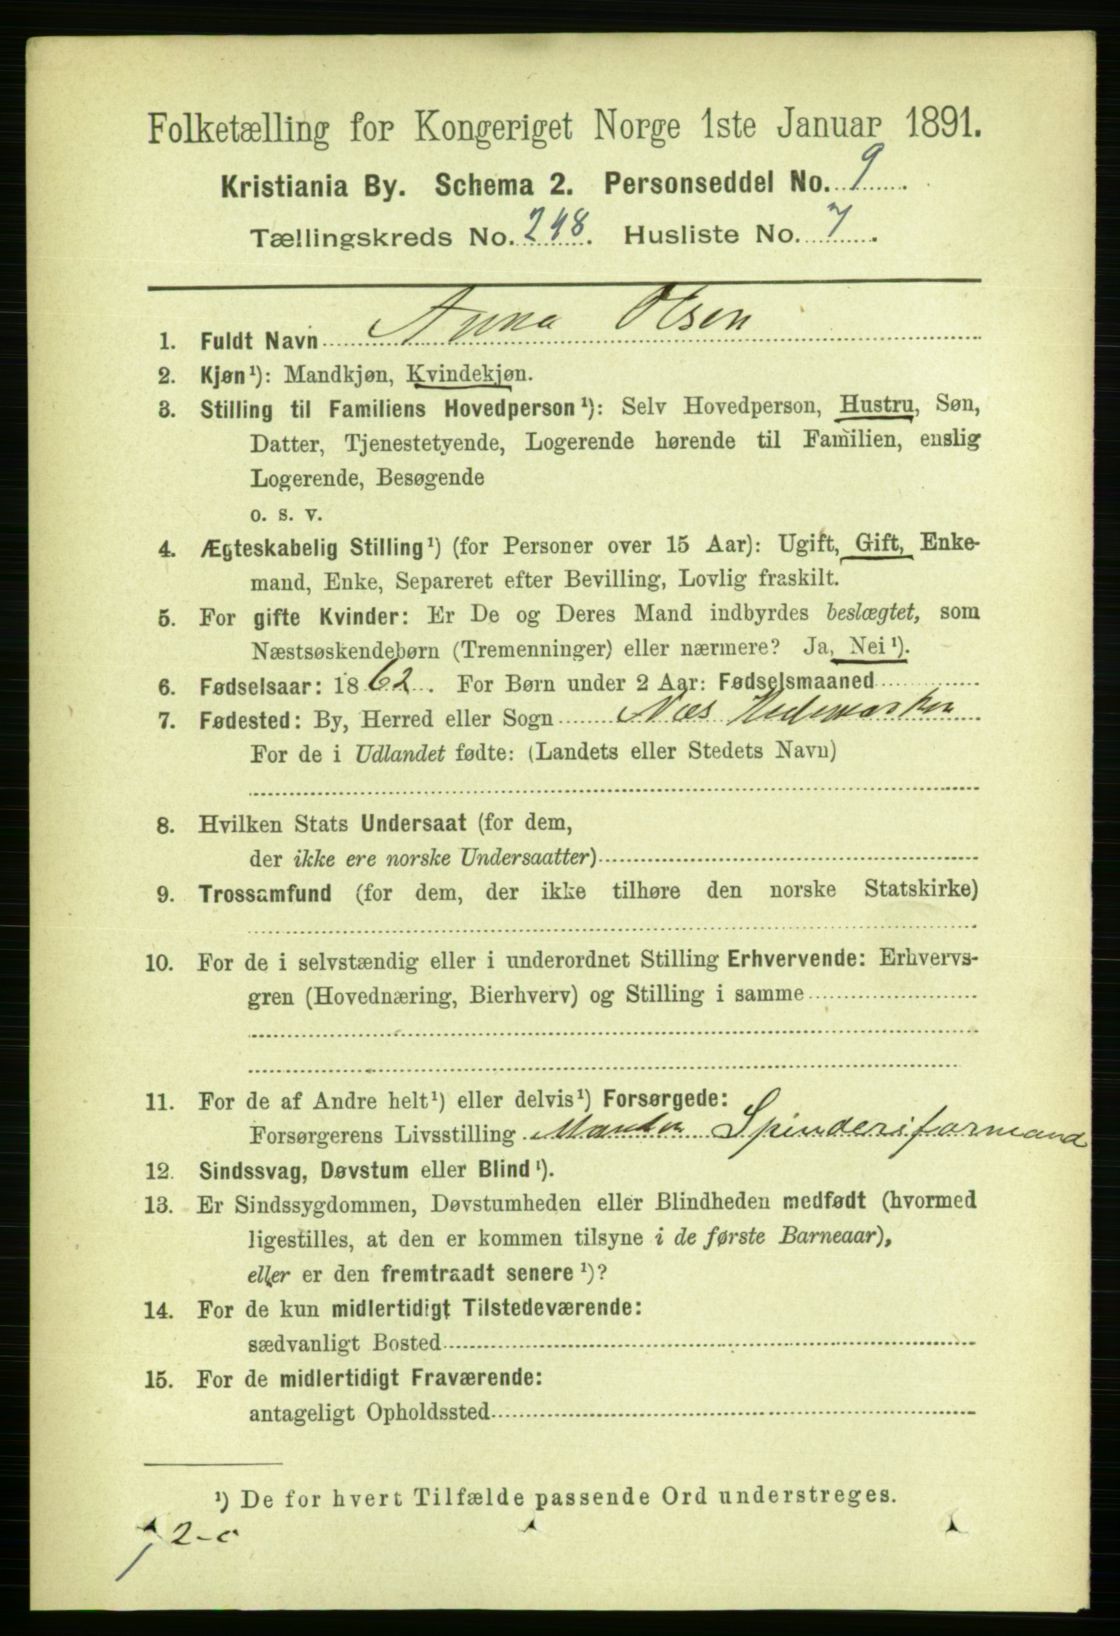 Folketælling for Kongeriget Norge 1ste Januar 1891.
Kristiania By. Schema 2. Personseddel No. 9.
Tællingskreds No. 248. Husliste No. 7.
1. Fuldt Navn Anna Olsen
2. Kjøn¹): Mandkjøn, Kvindekjøn.
3. Stilling til Familiens Hovedperson¹): Selv Hovedperson, Hustru, Søn,
Datter, Tjenestetyende, Logerende hørende til Familien, enslig
Logerende, Besøgende
o. s. v.
4. Ægteskabelig Stilling¹) (for Personer over 15 Aar): Ugift, Gift, Enke-
mand, Enke, Separeret efter Bevilling, Lovlig fraskilt.
5. For gifte Kvinder: Er De og Deres Mand indbyrdes beslægtet, som
Næstsøskendebørn (Tremenninger) eller nærmere? Ja, Nei¹).
6. Fødselsaar: 1862. For Børn under 2 Aar: Fødselsmaaned
7. Fødested: By, Herred eller Sogn Næs Hedemarken
For de i Udlandet fødte: (Landets eller Stedets Navn)
8. Hvilken Stats Undersaat (for dem,
der ikke ere norske Undersaatter)
9. Trossamfund (for dem, der ikke tilhøre den norske Statskirke)
10. For de i selvstændig eller i underordnet Stilling Erhvervende: Erhvervs-
gren (Hovednæring, Bierhverv) og Stilling i samme
11. For de af Andre helt¹) eller delvis¹) Forsørgede:
Forsørgerens Livsstilling Manden Spinderiformand
12. Sindssvag, Døvstum eller Blind¹).
13. Er Sindssygdommen, Døvstumheden eller Blindheden medfødt (hvormed
ligestilles, at den er kommen tilsyne i de første Barneaar),
eller er den fremtraadt senere¹)?
14. For de kun midlertidigt Tilstedeværende:
sædvanligt Bosted
15. For de midlertidigt Fraværende:
antageligt Opholdssted
¹) De for hvert Tilfælde passende Ord understreges.